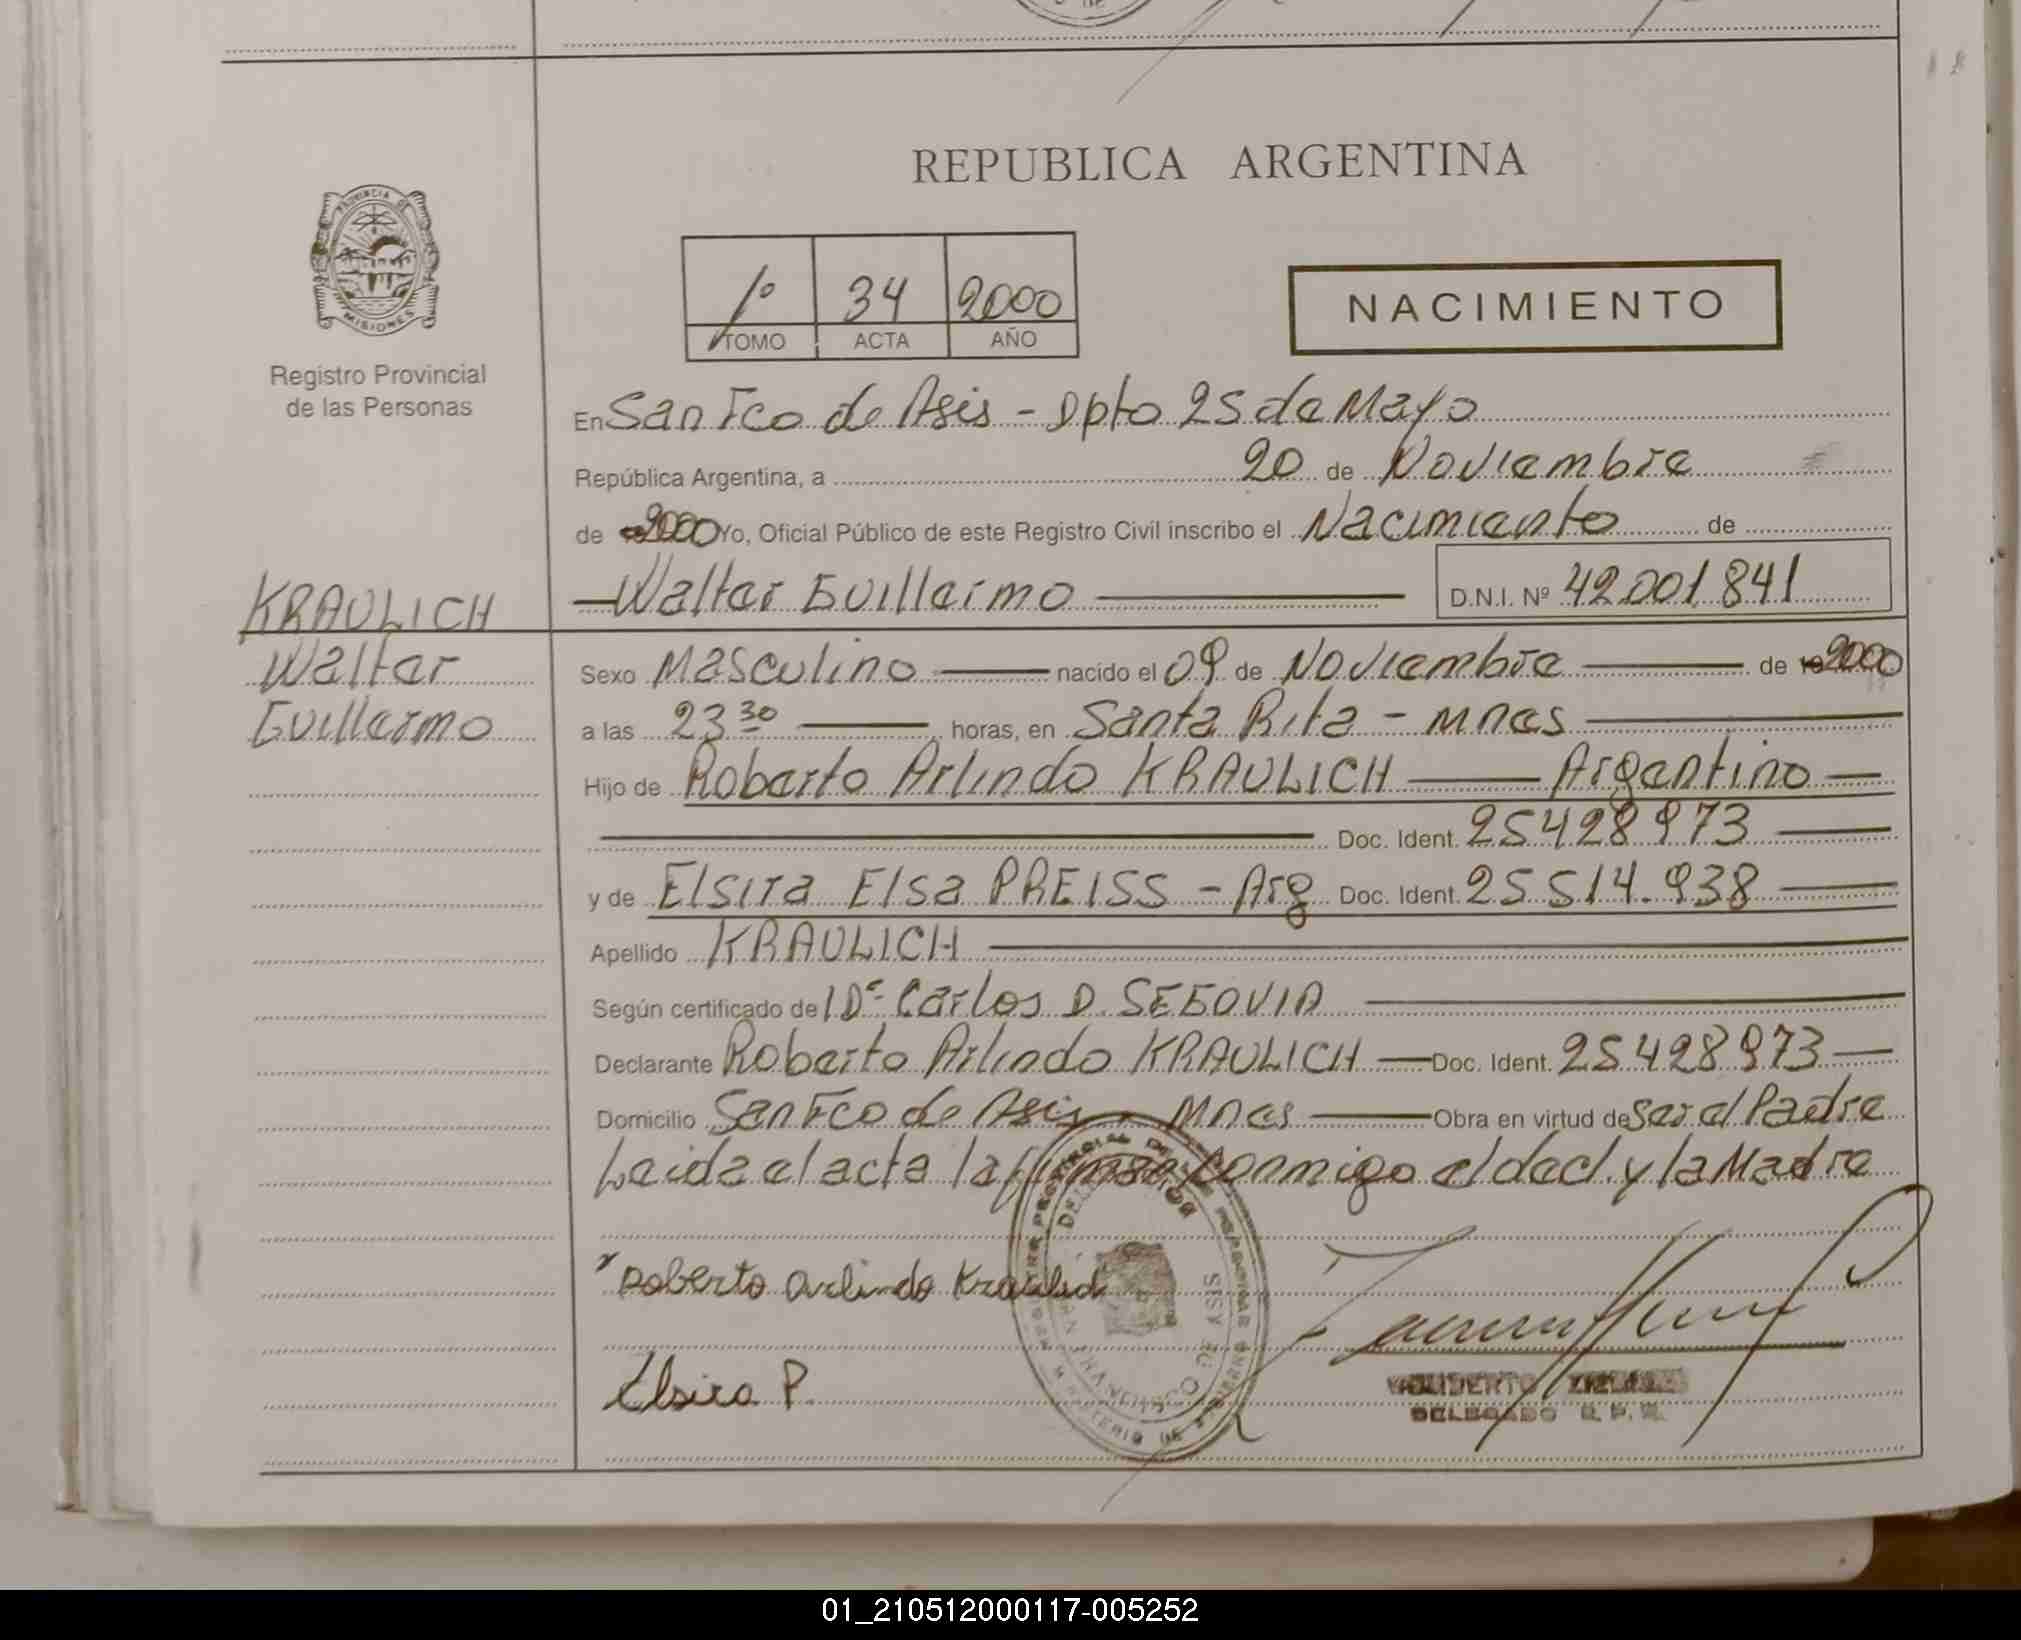 REPUBLICA ARGENTINA
PROVINCIA DE MISIONES
Registro Provincial
de las Personas
1º 34 2000
TOMO ACTA AÑO
NACIMIENTO
En San Fco de Asis - Dpto 25 de Mayo
República Argentina, a 20 de Noviembre
de 2000 Yo, Oficial Público de este Registro Civil inscribo el Nacimiento de
Walter Guillermo D.N.I. Nº 42.001.841
KRAULICH
Walter
Guillermo
Sexo Masculino nacido el 09 de Noviembre de 19 2000
a las 23 30 horas, en Santa Rita - Mnes
Hijo de Roberto Arlindo KRAULICH Argentino
Doc. Ident. 25428973
y de Elsira Elsa PREISS - Arg Doc. Ident. 25.514.938
Apellido KRAULICH
Según certificado de Dr. Carlos D. SEGOVIA
Declarante Roberto Arlindo KRAULICH Doc. Ident. 25428973
Domicilio San Fco de Asis - Mnes Obra en virtud de Ser el Padre
Leida el acta la firman conmigo el decl. y la Madre
Roberto Arlindo Kraulich
Elsira P.
DELEGADO R. P.
01_210512000117-005252